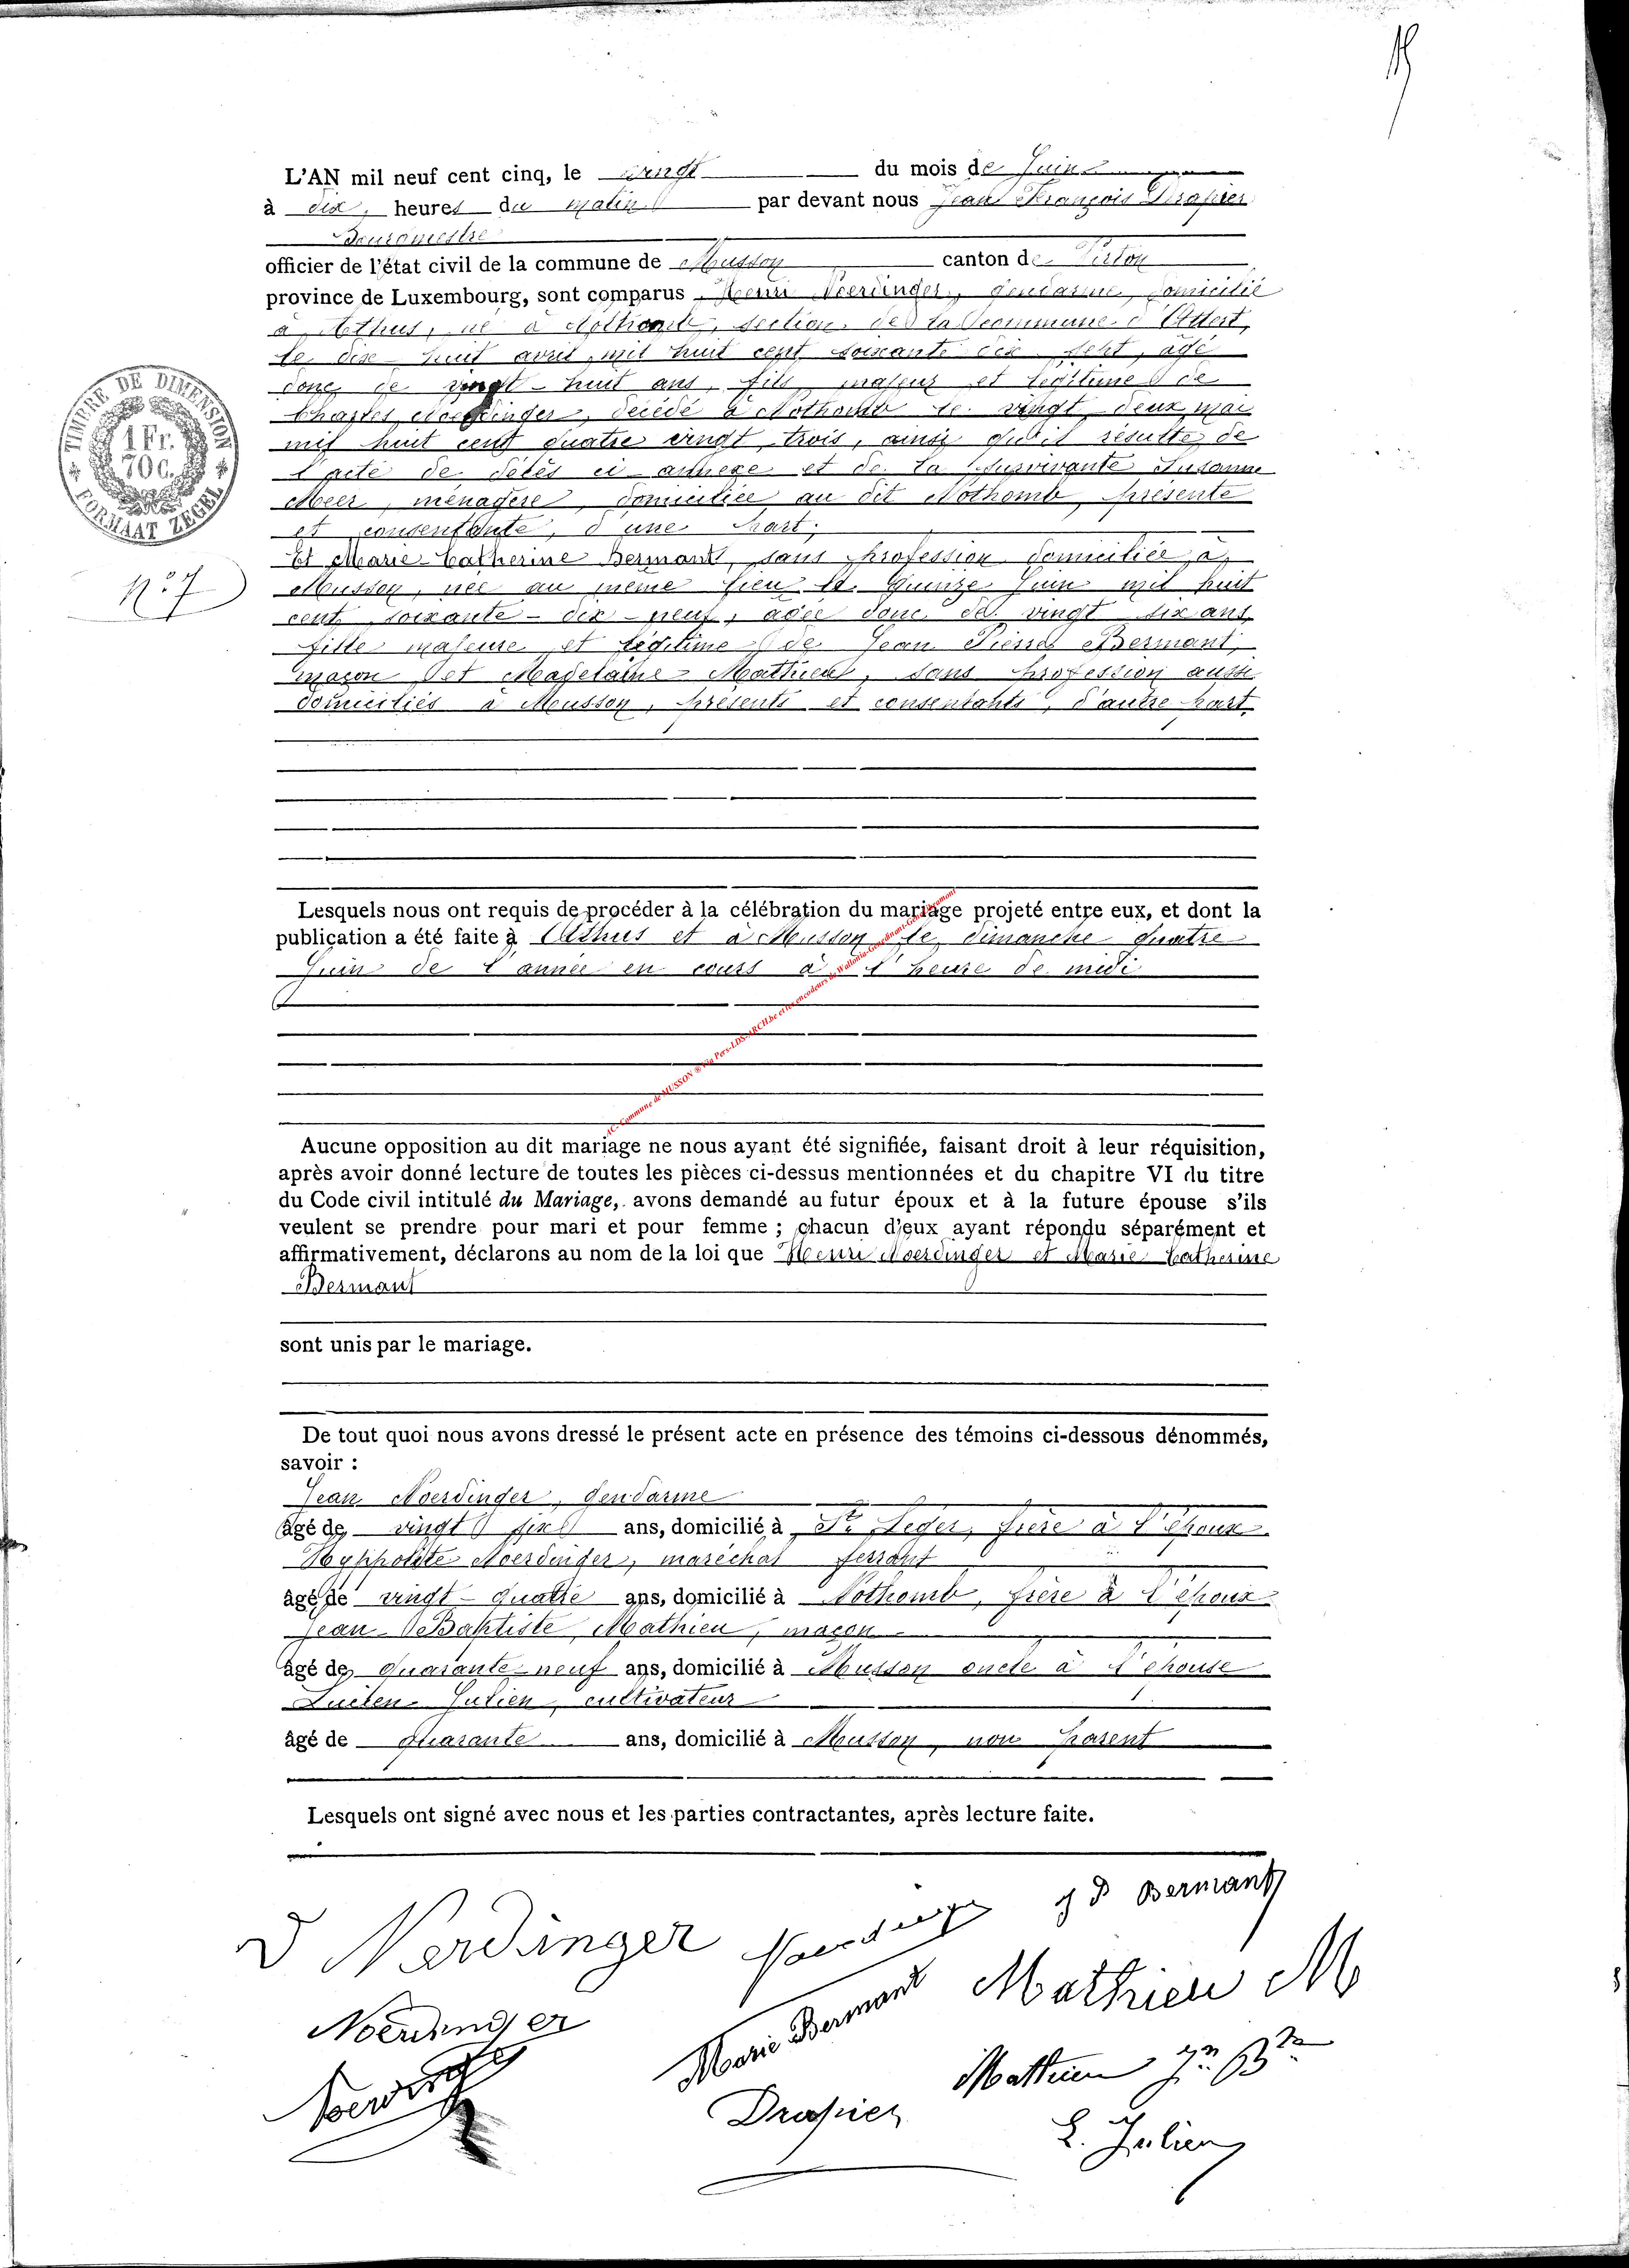 15
L'AN mil neuf cent cinq, le vingt du mois de Juin
à dix heures du matin par devant nous Jean François Drapier
Bourgmestre
officier de l'état civil de la commune de Musson canton de Virton
province de Luxembourg, sont comparus Henri Noerdinger, gendarme, domicilié
à Athus, né à Nothomb, section de la commune d'Attert,
le dix-huit avril mil huit cent soixante dix sept, âgé
donc de vingt-huit ans, fils majeur et légitime de
Charles Noerdinger, décédé à Nothomb le vingt deux mai
mil huit cent quatre vingt trois, ainsi qu'il résulte de
l'acte de décès ci annexé et de la survivante Susanne
Meer, ménagère, domiciliée au dit Nothomb, présente
et consentante, d'une part;
Et Marie Catherine Bermant, sans profession domiciliée à
Musson, née au même lieu le quinze Juin mil huit
cent soixante-dix-neuf, agée donc de vingt six ans,
fille majeure et légitime de Jean Pierre Bermant,
maçon et Madelaine Mathieu, sans profession aussi
domiciliés à Musson, présents et consentants, d'autre part
TIMBRE DE DIMENSION
1 Fr.
70 C.
FORMAAT ZEGEL
N° 7
Lesquels nous ont requis de procéder à la célébration du mariage projeté entre eux, et dont la
publication a été faite à Athus et à Musson le dimanche quatre
Juin de l'année en cours à l'heure de midi
AC- Commune de MUSSON ® Via Pers-LDS-ARCH.be et les encodeurs de Wallonia-Genedinant-Genealogramont
Aucune opposition au dit mariage ne nous ayant été signifiée, faisant droit à leur réquisition,
après avoir donné lecture de toutes les pièces ci-dessus mentionnées et du chapitre VI du titre
du Code civil intitulé du Mariage, avons demandé au futur époux et à la future épouse s'ils
veulent se prendre pour mari et pour femme ; chacun d'eux ayant répondu séparément et
affirmativement, déclarons au nom de la loi que Henri Noerdinger et Marie Catherine
Bermant
sont unis par le mariage.
De tout quoi nous avons dressé le présent acte en présence des témoins ci-dessous dénommés,
savoir :
Jean Noerdinger, gendarme
âgé de vingt six ans, domicilié à St Léger, frère à l'époux
Hyppolite Noerdinger, maréchal ferrant
âgé de vingt-quatre ans, domicilié à Nothomb, frère à l'époux
Jean-Baptiste Mathieu, maçon
âgé de quarante-neuf ans, domicilié à Musson oncle à l'épouse
Lucien Julien, cultivateur
âgé de quarante ans, domicilié à Musson, non parent
Lesquels ont signé avec nous et les parties contractantes, après lecture faite.
J P Bermant
Nerdinger Noerdinger
Mathieu M
Noerdinger Marie Bermant
Mathieu Jn Bte
Noerdinger
Drapier
L. Julien